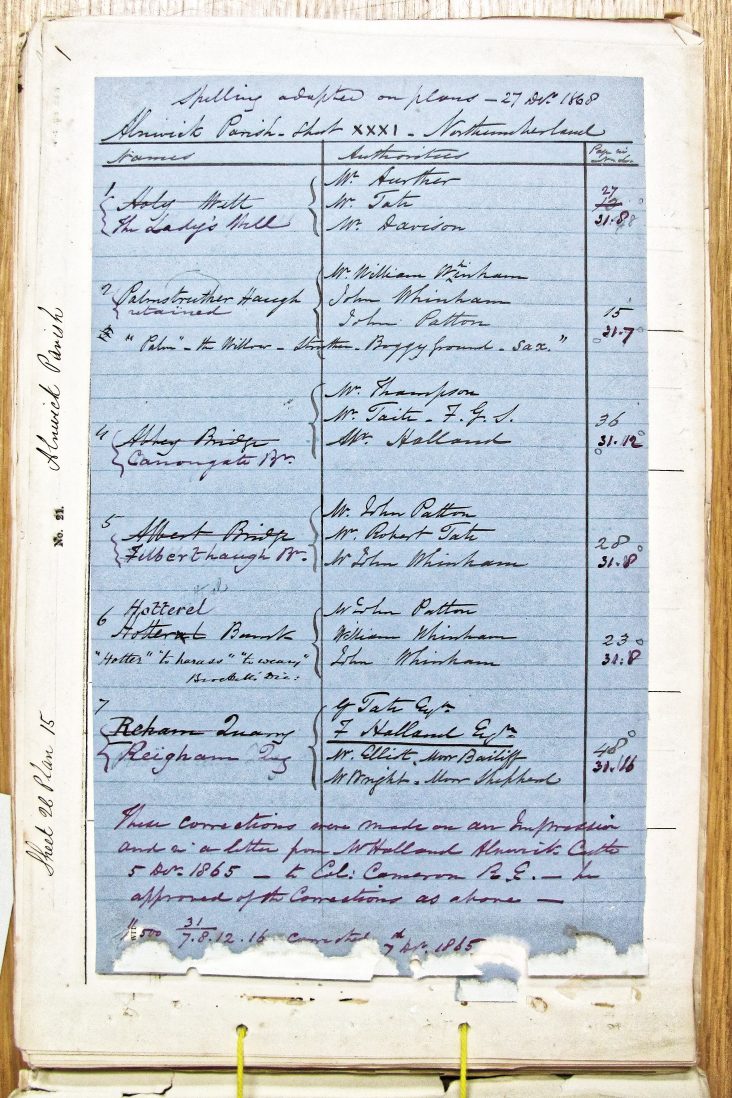 1
Spelling adopted on plans - 27 Decr. 1868
Alnwick Parish - Sheet XXXI - Northumberland
Names
Authorities
Page in
1
Holy Well
The Lady's Well
Mr. Aurther
Mr Tate
Mr. Davison
27
31.8
2
Palmstruther Haugh
retained
Mr. William Whinham
John Whinham
John Patton
15
31.7
"Palm" - the Willow - Struther - Boggy Ground - Sax."
4
Abbey Bridge
Canongate Br.
Mr. Thompson
Mr. Taite - F. G. S.
Mr. Holland
36
31.12
5
Albert Bridge
Filberthaugh Br.
Mr. John Patton
Mr. Robert Tate
Mr John Whinham
28
31.8
6
Hotterel
Hotteral Bank
"Hotter" "to harass" "to weary"
Brockett's Dic:
Mr John Patton
William Whinham
John Whinham
23
31.8
7
Reham Quarry
Reigham Qy
G Tate Esqre
F Holland Esqre
Mr. Elliot, Moor Bailiff
Mr Wright - Moor Shepherd
48
31.16
These corrections were made on an Impression
and in a letter from Mr Holland Alnwick Castle
5 Decr. 1865 - to Col: Cameron R.E. - he
approved of the Corrections as above -
1/2500 31/7.8.12.16 corrected 7th Decr. 1865
Alnwick Parish
No. 21.
Sheet 26 Plan 15